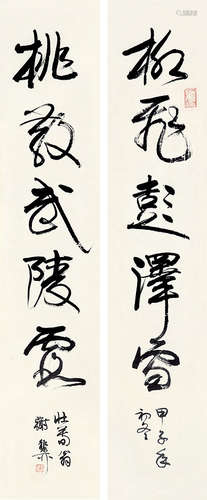 柳飛彭澤雪
甲子年
初冬
桃散武陵霞
壯暮翁
謝稚